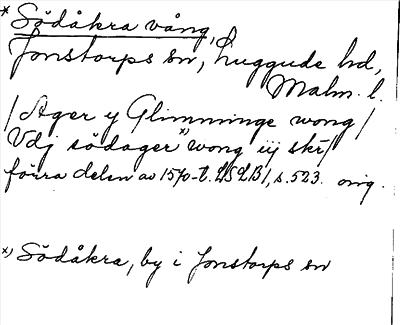 * Södåkra vång,
Jonstorps sn, Luggude hd,
Malm. l.
/Ager y Glimminge wong/
Vdj södager x) wong iij skr/
förra delen av 1570-t. LSLB1, s. 523. orig.
x) Södåkra, by i Jonstorps sn